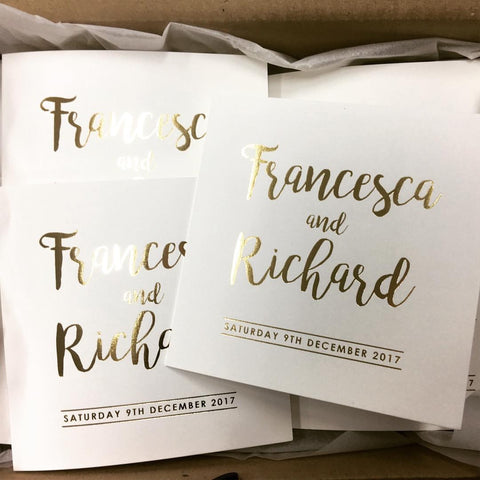 Francesca
and
Francesca
and
Richard
SATURDAY 9TH DECEMBER 2017
Francesca
and
Richard
SATURDAY 9TH DECEMBER 2017